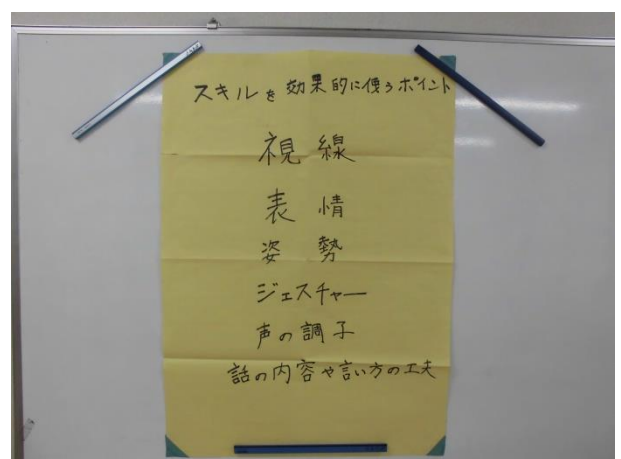 スキルを効果的に使うポイント
視線
表情
姿勢
ジェスチャー
声の調子
話の内容や言い方の工夫